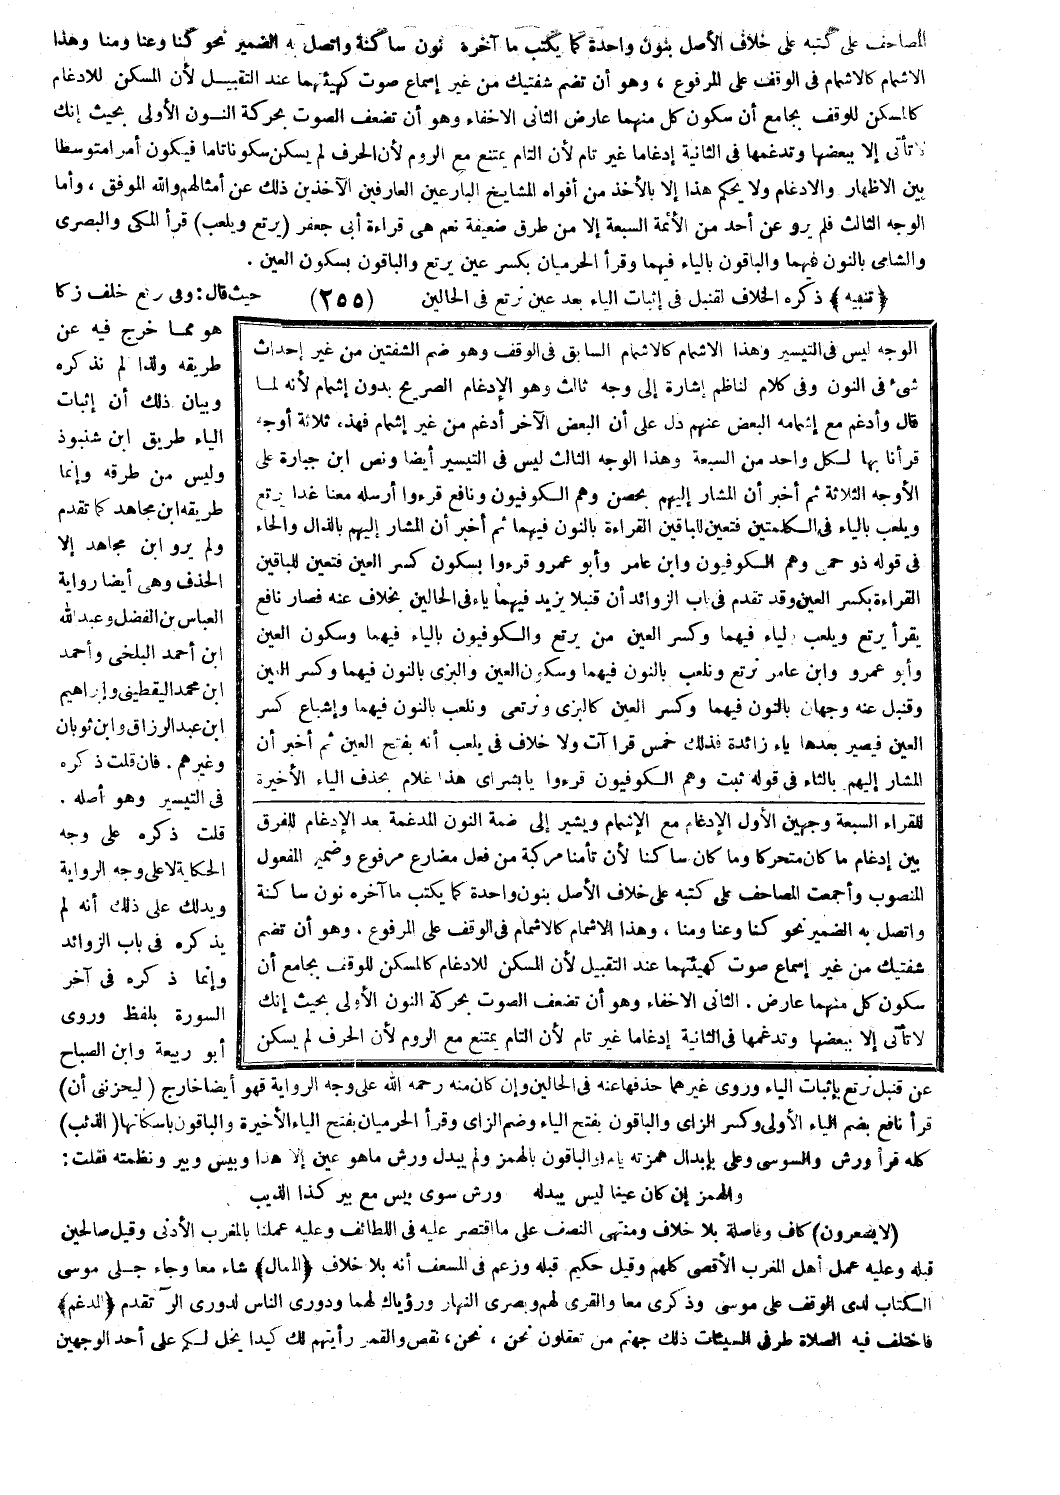 المصاحف على كتبه على خلاف الأصل بنون واحدة كما يكتب ما آخره نون ساكنة واتصل به الضمير نحو كنا وعنا ومنا وهذا
الاشمام كالاشمام فى الوقف على المرفوع ، وهو أن تضم شفتيك من غير إسماع صوت كهيئتهما عند التقبيل لأن المسكن للادغام
كالمسكن للوقف بجامع أن سكون كل منهما عارض الثانى الاخفاء وهو أن تضعف الصوت بحركة النون الأولى بحيث إنك
لا تأتى إلا ببعضها وتدغمها فى الثانية إدغاما غير تام لأن التام يمتنع مع الروم لأن الحرف لم يسكن سكونا تاما فيكون أمرا متوسطا
بين الاظهار والادغام ولا يحكم هذا إلا بالأخذ من أفواه المشايخ البارعين العارفين الآخذين ذلك عن أمثالهم والله الموفق ، وأما
الوجه الثالث فلم يرو عن أحد من الأئمة السبعة إلا من طرق ضعيفة نعم هى قراءة أبى جعفر (يرتع ويلعب) قرأ المكى والبصرى
والشامى بالنون فيهما والباقون بالياء فيهما وقرأ الحرميان بكسر عين يرتع والباقون بسكون العين .
﴿تنبيه﴾ ذكره الخلاف لقنبل فى إثبات الياء بعد عين نرتع فى الحالين (٢٥٥) حيث قال : وفى رتع خلف زكا
هو مما خرج فيه عن
طريقه ولذا لم نذكره
وبيان ذلك أن إثبات
الياء طريق ابن شنبوذ
وليس من طرقه وإنما
طريقه ابن مجاهد كما تقدم
ولم يرو ابن مجاهد إلا
الحذف وهى أيضا رواية
العباس بن الفضل وعبد الله
ابن أحمد البلخى وأحمد
ابن محمد اليقطينى وإبراهيم
ابن عبد الرزاق وابن ثوبان
وغيرهم . فان قلت ذكره
فى التيسير وهو أصله .
قلت ذكره على وجه
الحكاية لا على وجه الرواية
ويدلك على ذلك أنه لم
يذكره فى باب الزوائد
وإنما ذكره فى آخر
السورة بلفظ وروى
أبو ربيعة وابن الصباح
الوجه ليس فى التيسير وهذا الاشمام كالاشمام السابق فى الوقف وهو ضم الشفتين من غير إحداث
شىء فى النون وفى كلام لناظم إشارة إلى وجه ثالث وهو الإدغام الصريح بدون إشمام لأنه لما
قال وأدغم مع إشمامه البعض عنهم دل على أن البعض الآخر أدغم من غير إشمام فهذه ثلاثة أوجه
قرأنا بها لكل واحد من السبعة وهذا الوجه الثالث ليس فى التيسير أيضا ونص ابن جبارة على
الأوجه الثلاثة ثم أخبر أن المشار إليهم بحصن وهم الكوفيون ونافع قرءوا أرسله معنا غدا يرتع
ويلعب بالياء فى الكلمتين فتعين للباقين القراءة بالنون فيهما ثم أخبر أن المشار إليهم بالذال والحاء
فى قوله ذو حمى وهم الكوفيون وابن عامر وأبو عمرو قرءوا بسكون كسر العين فتعين للباقين
القراءة بكسر العين وقد تقدم فى باب الزوائد أن قنبلا يزيد فيهما ياء فى الحالين بخلاف عنه فصار نافع
يقرأ يرتع ويلعب بالياء فيهما وكسر العين من يرتع والكوفيون بالياء فيهما وسكون العين
وأبو عمرو وابن عامر نرتع ونلعب بالنون فيهما وسكون العين والبزى بالنون فيهما وكسر العين
وقنبل عنه وجهان بالنون فيهما وكسر العين كالبزى ونرتعى ونلعب بالنون فيهما وإشباع كسر
العين فيصير بعدها ياء زائدة فذلك خمس قرا آت ولا خلاف فى يلعب أنه بفتح العين ثم أخبر أن
المشار إليهم بالثاء فى قوله ثبت وهم الكوفيون قرءوا يا بشراى هذا غلام بحذف الياء الأخيرة
للقراء السبعة وجهين الأول الإدغام مع الإشمام ويشير إلى ضمة النون المدغمة بعد الإدغام للفرق
بين إدغام ما كان متحركا وما كان ساكنا لأن تأمنا مركبة من فعل مضارع مرفوع وضمير المفعول
المنصوب وأجمعت المصاحف على كتبه على خلاف الأصل بنون واحدة كما يكتب ما آخره نون ساكنة
واتصل به الضمير نحو كنا وعنا ومنا ، وهذا الاشمام كالاشمام فى الوقف على المرفوع . وهو أن تضم
شفتيك من غير إسماع صوت كهيئتهما عند التقبيل لأن المسكن للادغام كالمسكن للوقف بجامع أن
سكون كل منهما عارض . الثانى الاخفاء وهو أن تضعف الصوت بحركة النون الأولى بحيث إنك
لا تأتى إلا ببعضها وتدغمها فى الثانية إدغاما غير تام لأن التام يمتنع مع الروم لأن الحرف لم يسكن
عن قنبل نرتع بإثبات الياء وروى غيرهما حذفها عنه فى الحالين وإن كان منه رحمه الله على وجه الرواية فهو أيضا خارج ( ليحزننى أن)
قرأ نافع بضم الياء الأولى وكسر الزاى والباقون بفتح الياء وضم الزاى وقرأ الحرميان بفتح الياء الأخيرة والباقون باسكانها ( الذئب)
كله قرأ ورش والسوسى وعلى بإبدال همزته ياء والباقون بالهمز ولم يبدل ورش ماهو عين إلا هذا وبيس وبير ونظمته فقلت :
والهمز إن كان عينا ليس يبدله ورش سوى بيس مع بير كذا الذيب
(لا يشعرون) كاف وفاصلة بلا خلاف ومنتهى النصف على ما اقتصر عليه فى اللطائف وعليه عملنا بالمغرب الأدنى وقيل صالحين
قبله وعليه عمل أهل المغرب الأقصى كلهم وقيل حكيم قبله وزعم فى المسعف أنه بلا خلاف ﴿الممال﴾ شاء معا وجاء جلى موسى
الكتاب لدى الوقف على موسى وذكرى معا والقرى لهم وبصرى النهار ورؤياك لهما ودورى الناس لدورى الر آ تقدم ﴿المدغم﴾
فاختلف فيه الصلاة طرفى السيئات ذلك جهنم من تعقلون نحن ، نحن ، نقص والقمر رأيتهم لك كيدا يخل لكم على أحد الوجهين